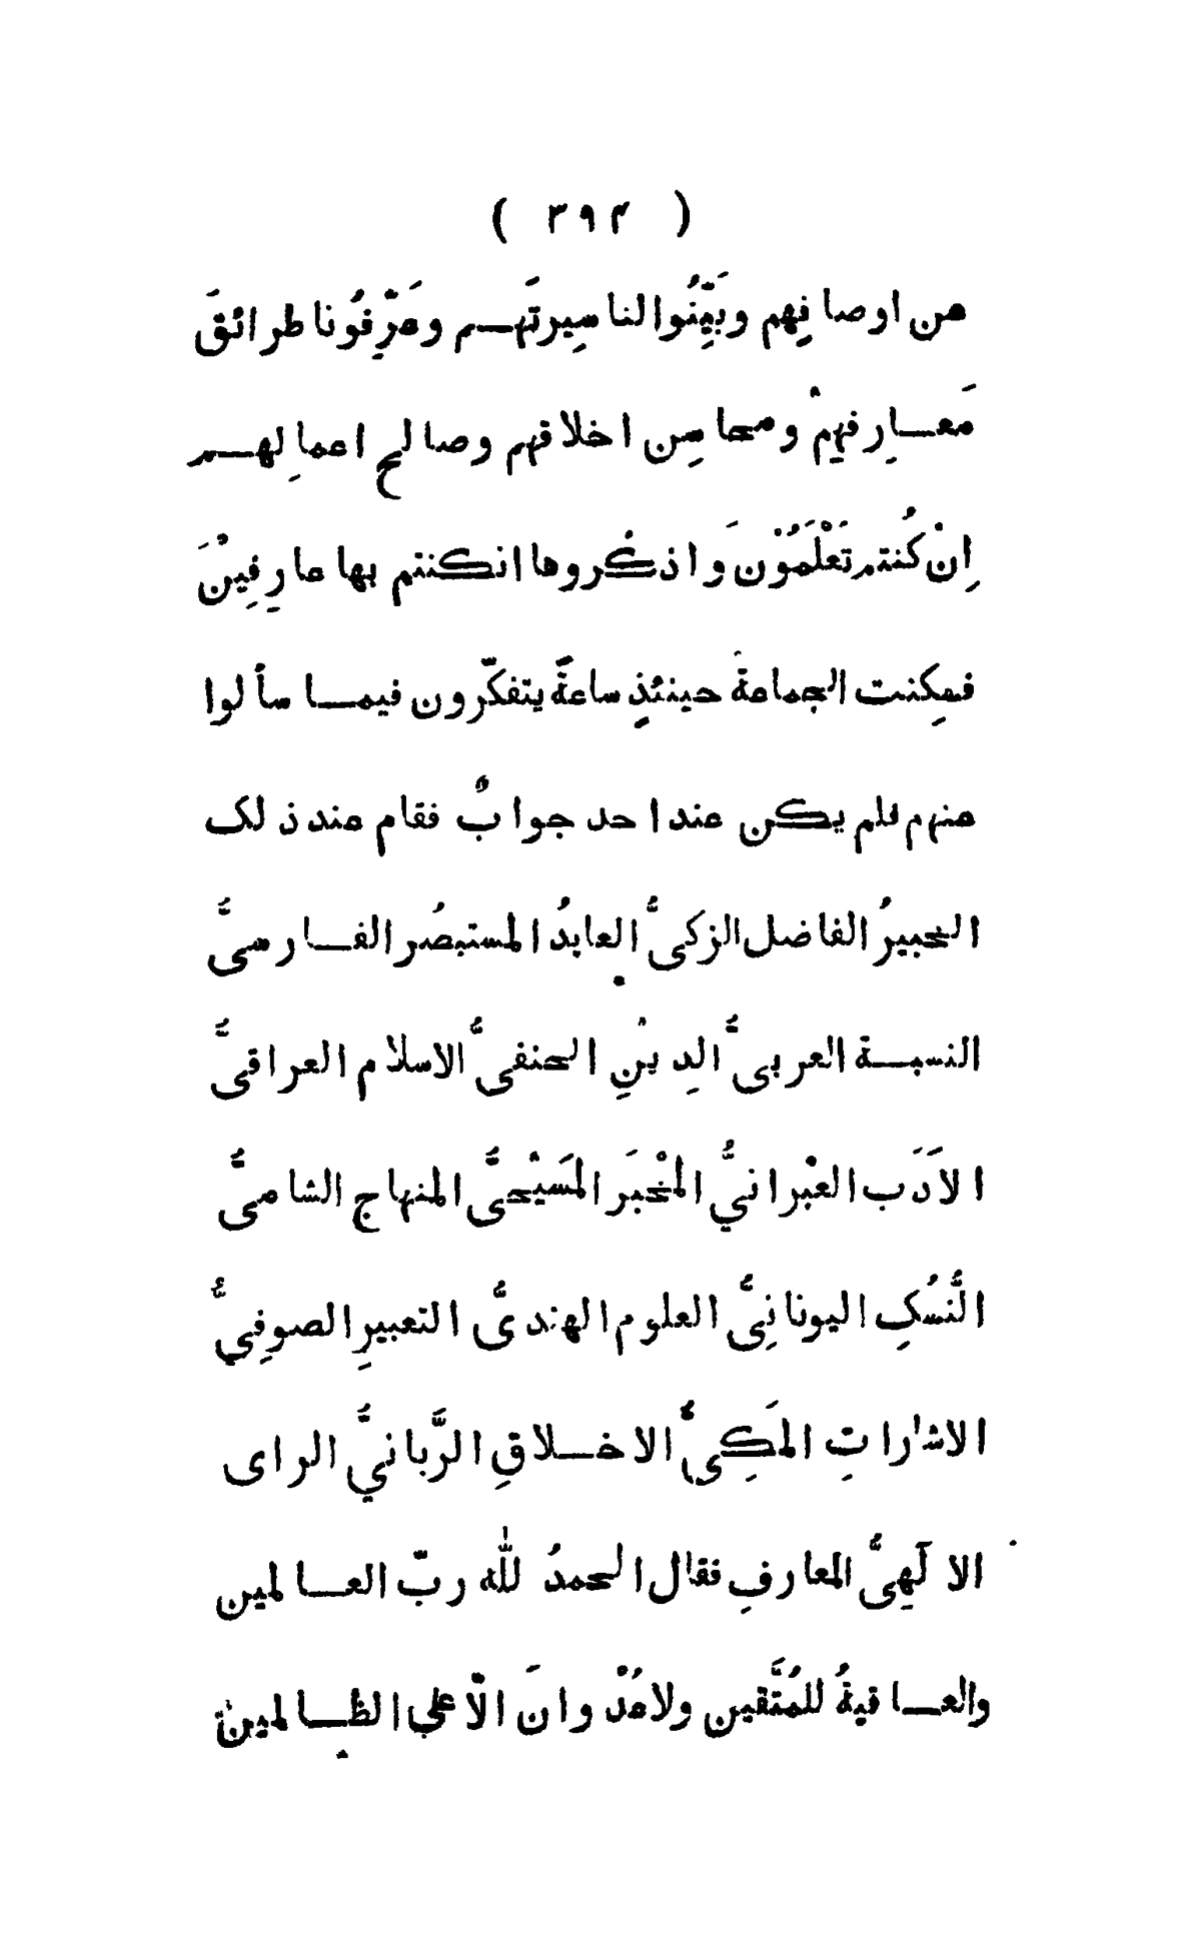 ( ٣٩۴ )
من اوصافِهم وبَيِّنُوا لنا سِيرتَهـم وعَرِّفُونا طرائقَ
مَعـارِفِهِمْ ومحاسِن اخلاقهم وصالح اعمالِهـم
اِنْ كُنتم تَعْلَمُوْنَ واذكُروها انكنتم بها عارِفِينَ
فمكِنت الجماعةَ حينئذٍ ساعةً يتفكّرون فيمـا سألوا
منهم فلم يكن عند احد جوابٌ فقام عند ذلک
الخبيرُ الفاضل الزكىُّ العابدُ المستبصُر الفـارسىُّ
النسبـة العربىُّ الدِينِ الحنفىُّ الاسلام العراقىُّ
الاَدَب العبْرانىُّ المخْبَر المَسَيْحىُّ المنهاج الشامىُّ
النُّسُكِ اليونانِىُّ العلوم الهندىُّ التعبيرِ الصوفِيُّ
الاشاراتِ المَكِىُّ الاخـلاقِ الرَّبانيُّ الراى
الالٓهِىُّ المعارفِ فقال الحمدُ للّٰه ربّ العـالمين
والعـاقبةُ للمُتَّقين ولا عُدْوانَ الّا علي الظـالمين